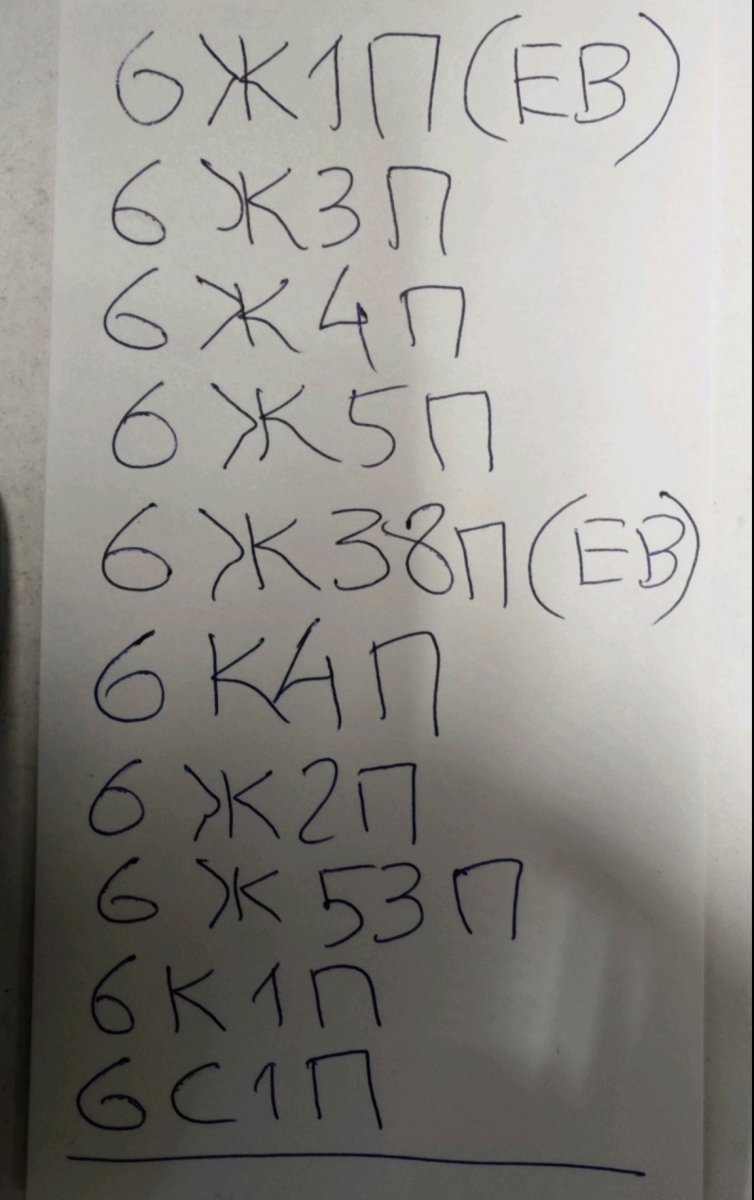 6Ж1П(ЕВ)
6Ж3П
6Ж4П
6Ж5П
6Ж38П(ЕВ)
6К4П
6Ж2П
6Ж53П
6К1П
6С1П